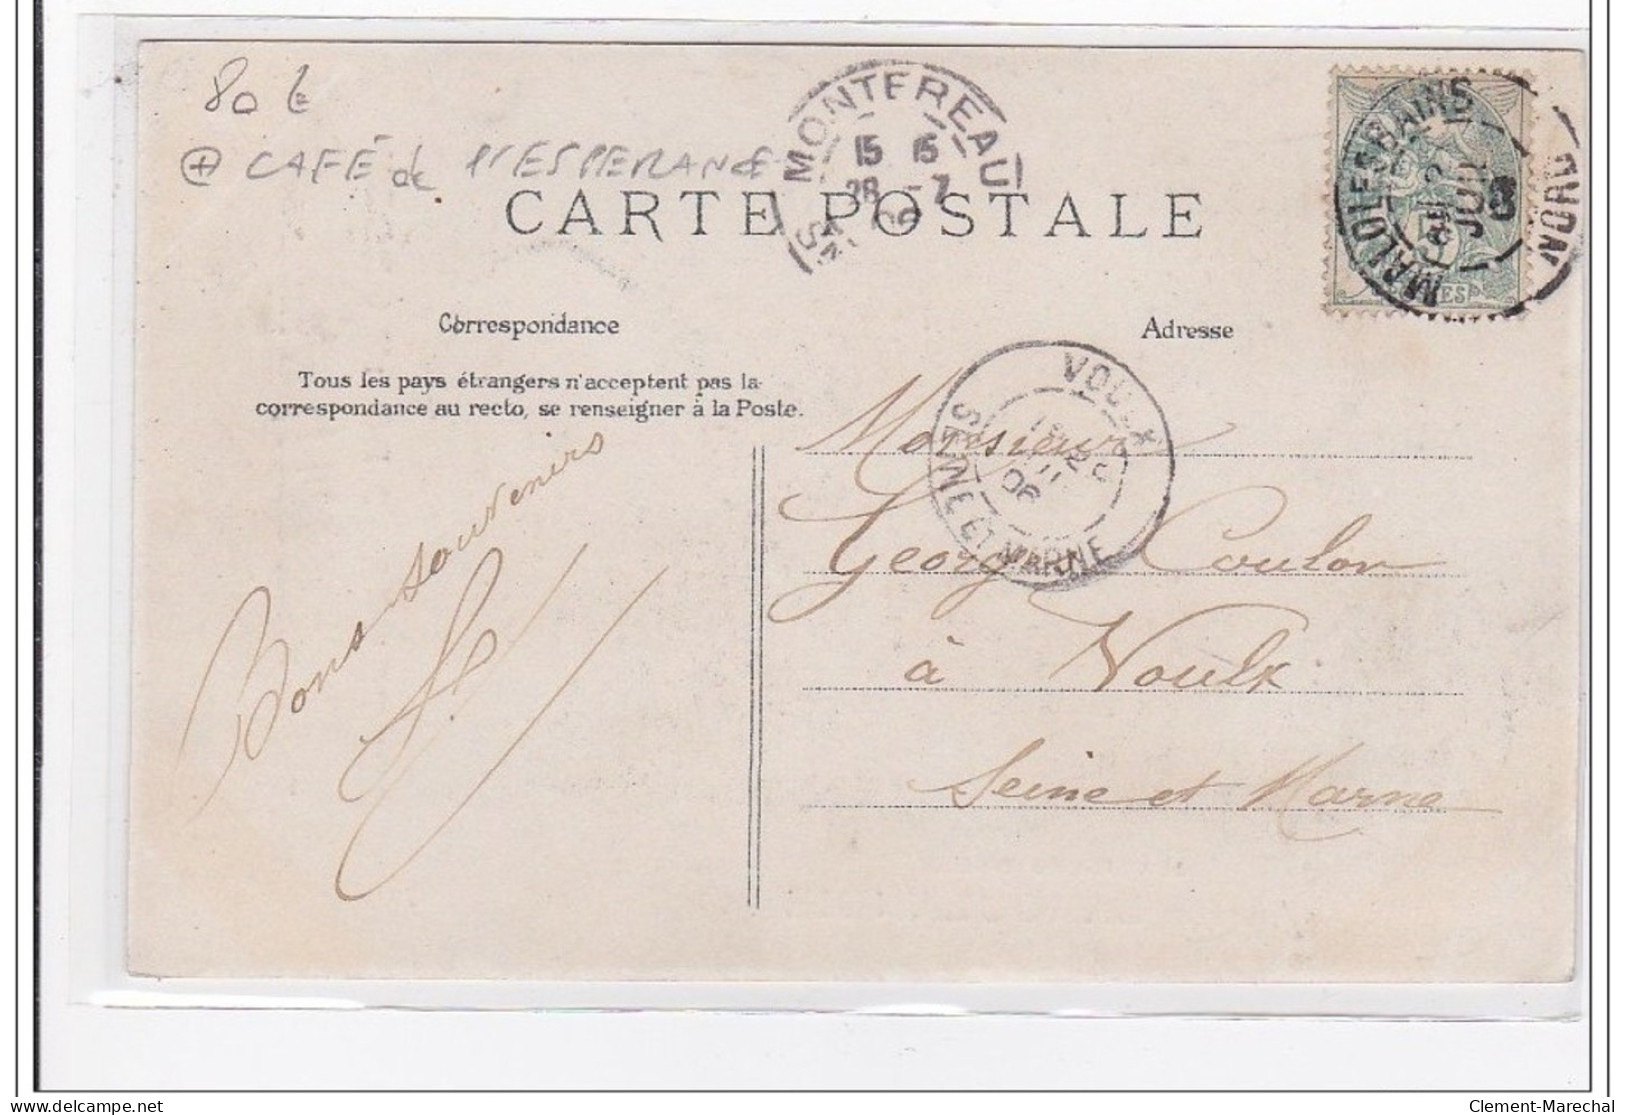 80 €
+ CAFÉ de l'ESPERANCE
MONTEREAU
15 15
28 -7
06
CARTE POSTALE
MALO LES BAINS
NORD
Correspondance
Adresse
Tous les pays étrangers n'acceptent pas la
correspondance au recto, se renseigner à la Poste.
VOULX
SEINE ET MARNE
06
Bons souvenirs
Monsieur
Georges Coulon
à Voulx
Seine et Marne
delcampe.net
Clement-Marechal